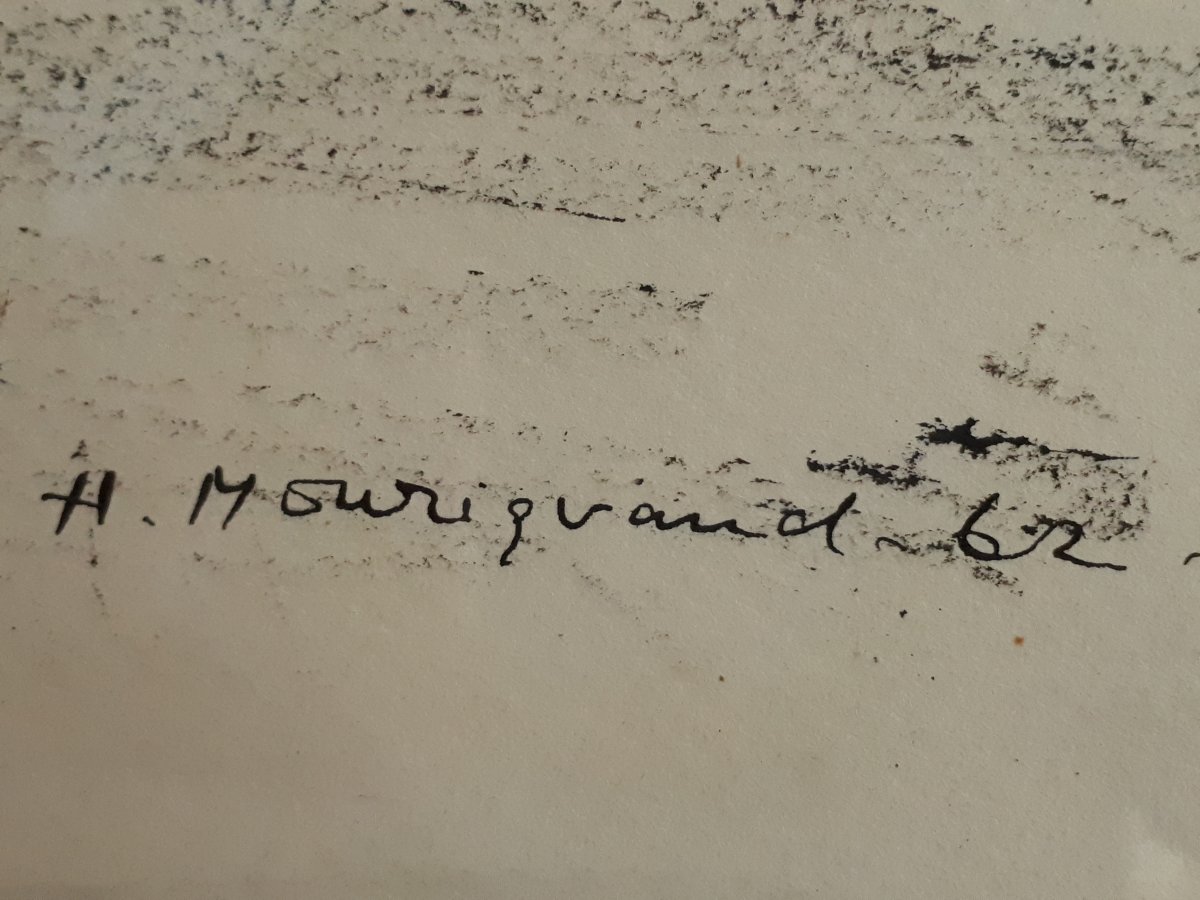 H. Mouriqvand. 62.